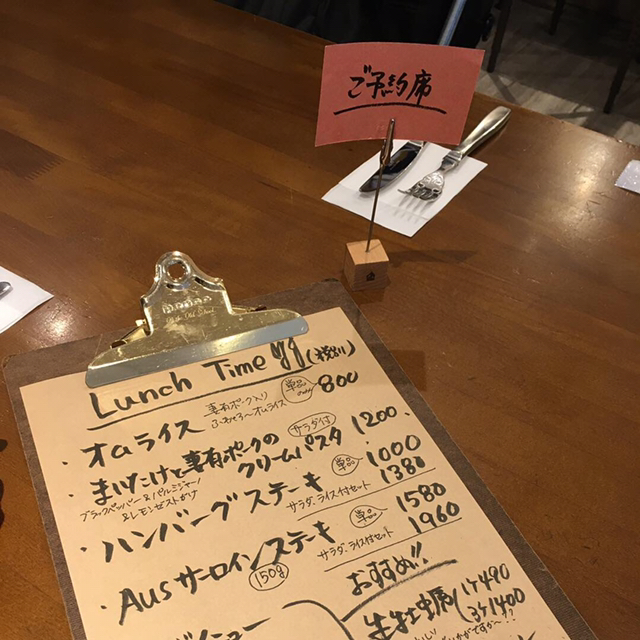 ご予約席
Lunch Time
オムライス 妻有ポーク入り 単品 800
ふわとろ〜オムライス
まいたけと妻有ポークの サラダ付 1200
クリームパスタ
ブラックペッパー&パルミジャーノ
&レモンゼストがけ
ハンバーグステーキ 単品 1000
サラダ、ライス付セット 1380
AUSサーロインステーキ 単品 1580
150g サラダ、ライス付セット 1960
おすすめ!!
1ヶ490
3ヶ1400